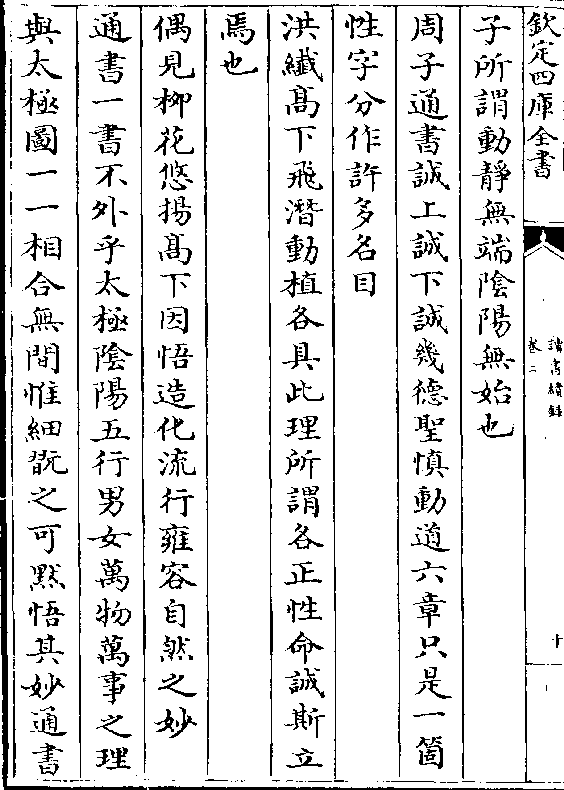 欽定四庫全書
讀書續錄
卷二
十
子所謂動靜無端陰陽無始也
周子通書誠上誠下誠幾德聖慎動道六章只是一箇
性字分作許多名目
洪纖髙下飛潛動植各具此理所謂各正性命誠斯立
焉也
偶見栁花悠揚髙下因悟造化流行雍容自然之妙
通書一書不外乎太極陰陽五行男女萬物萬事之理
與太極圖一一相合無間惟細翫之可黙悟其妙通書